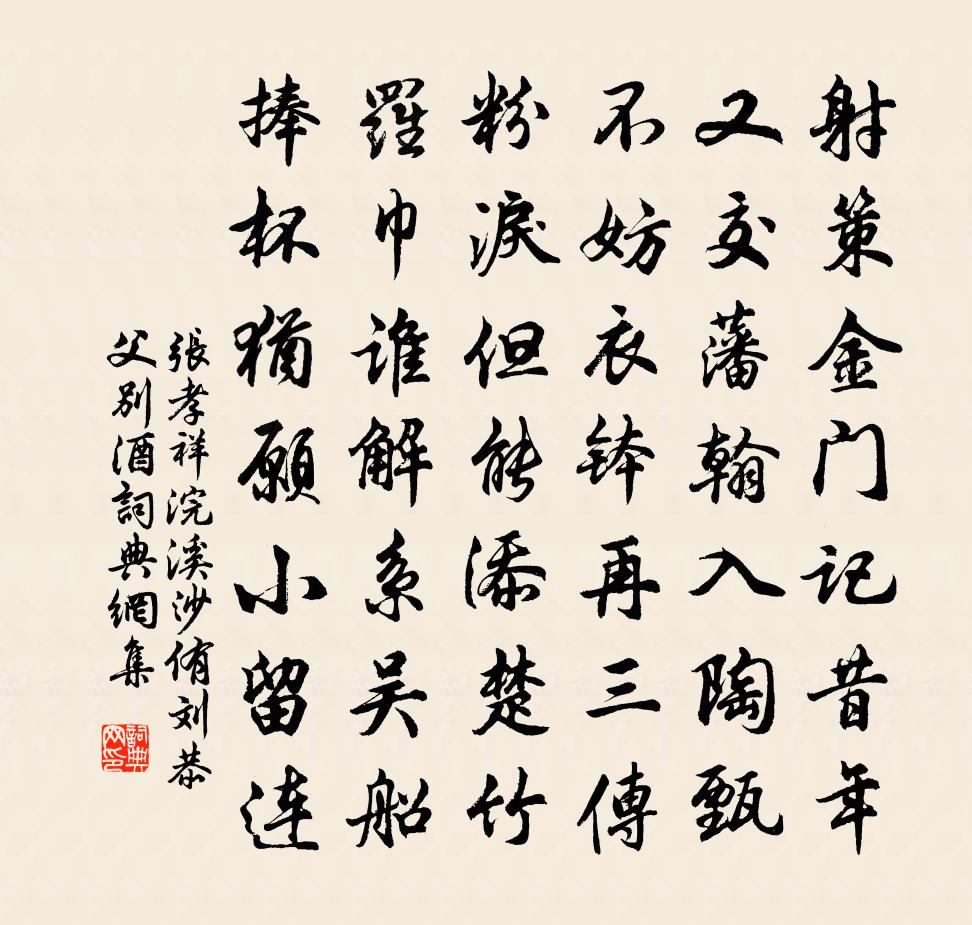 射策金门記昔年
又交藩翰入陶甄
不妨衣钵再三傳
粉淚但能添楚竹
羅巾誰解系吴船
捧杯猶願小留連
張孝祥浣溪沙侑刘恭
父别酒詞典網集
詞典网印